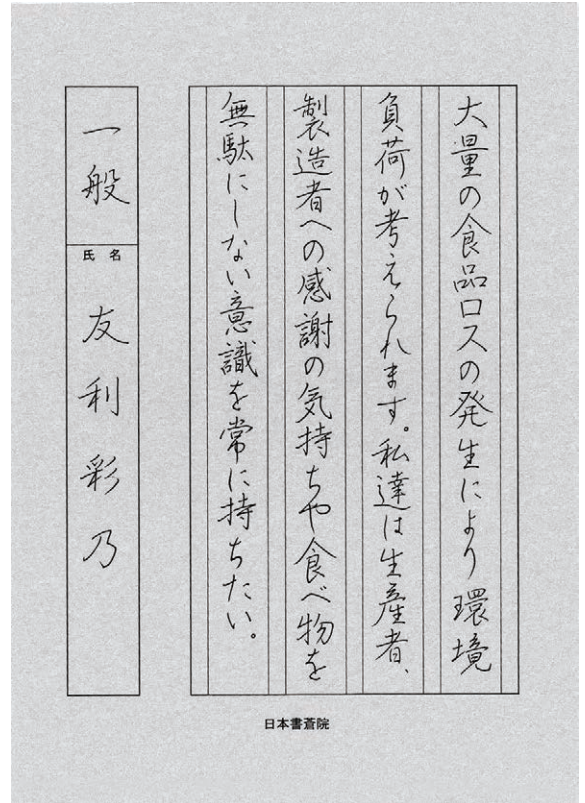 大量の食品ロスの発生により環境
負荷が考えられます。私達は生産者、
製造者への感謝の気持ちや食べ物を
無駄にしない意識を常に持ちたい。
一般
氏名
友利彩乃
日本書蒼院